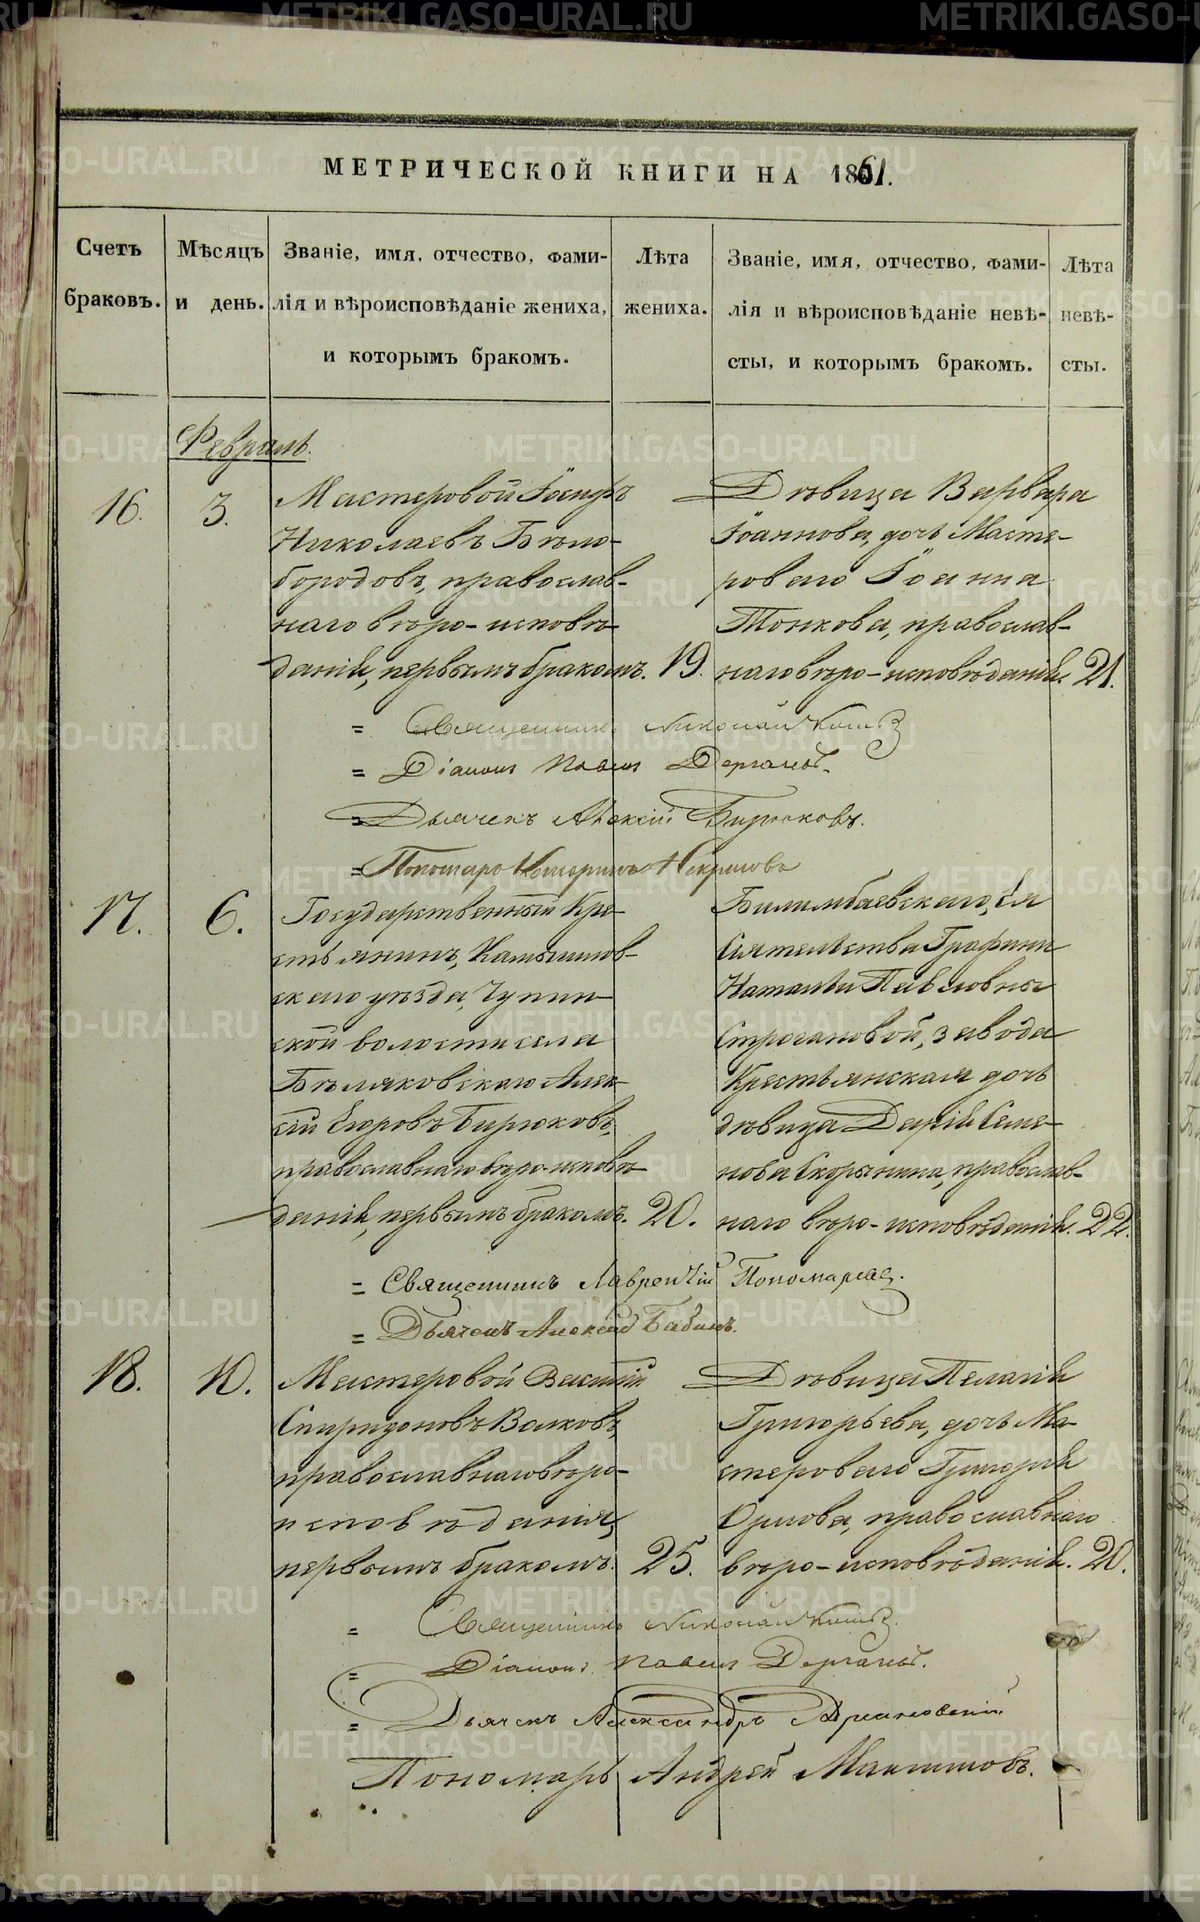 METRIKI.GASO-URAL.RU
МЕТРИЧЕСКОЙ КНИГИ НА 1861.
Счетъ браковъ.
Мѣсяцъ и день.
Званіе, имя, отчество, фами-
лія и вѣроисповѣданіе жениха,
и которымъ бракомъ.
Лѣта жениха.
Званіе, имя, отчество, фами-
лія и вѣроисповѣданіе невѣ-
сты, и которымъ бракомъ.
Лѣта невѣ-
сты.
Февраль.
16. 3.
Мастеровой
Николаевъ Бѣло-
бородовъ, православ-
наго вѣро-исповѣ-
данія, первымъ бракомъ. 19.
Дѣвица Варвара
Іоаннова, дочь Масте-
роваго Іоанна
Тонкова, православ-
наго вѣро-исповѣданія. 21.
= Священникъ Николай
= Діаконъ Павелъ Дергачевъ.
= Дьячекъ Алексій Бирюковъ.
= Пономарь Некрасовъ
17. 6.
Государственный Кре-
стьянинъ, Камышлов-
скаго уѣзда, Чупин-
ской волости села
Бѣляковскаго Алек-
сій Егоровъ Бирюковъ,
православнаго вѣро-исповѣ-
данія, первымъ бракомъ. 20.
Билимбаевскаго, Ея
Сіятельства Графини
Наталіи Павловны
Строгановой, завода
Крестьянская дочь
дѣвица Дарія Семе-
нова Скорынина, православ-
наго вѣро-исповѣданія. 22.
= Священникъ Лаврентій Пономаревъ.
= Дьячекъ Алексій Бабинъ.
18. 10.
Мастеровой Василій
Спиридоновъ Волковъ,
православнаго вѣро-
исповѣданія,
первымъ бракомъ. 25.
Дѣвица Пелагія
Григорьева, дочь Ма-
стероваго Григорія
Орлова, православнаго
вѣро-исповѣданія. 20.
= Священникъ Николай
= Діаконъ Павелъ Дергачевъ.
= Дьячекъ Александръ
Пономарь Андрей Максимовъ.